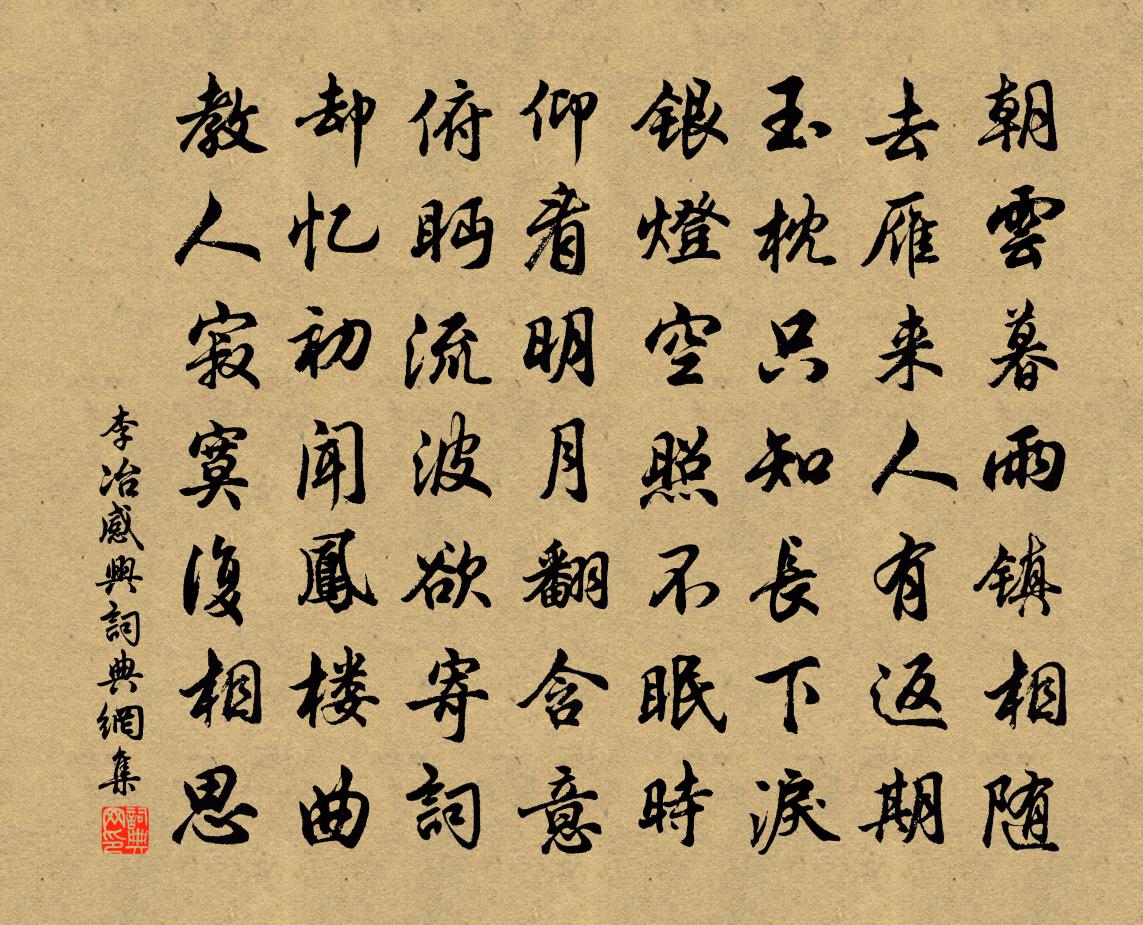 朝雲暮雨镇相随
去雁来人有返期
玉枕只知長下淚
銀燈空照不眠時
仰看明月翻含意
俯眄流波欲寄詞
却忆初闻鳳楼曲
教人寂寞復相思
李冶感興詞典網集
詞典网印